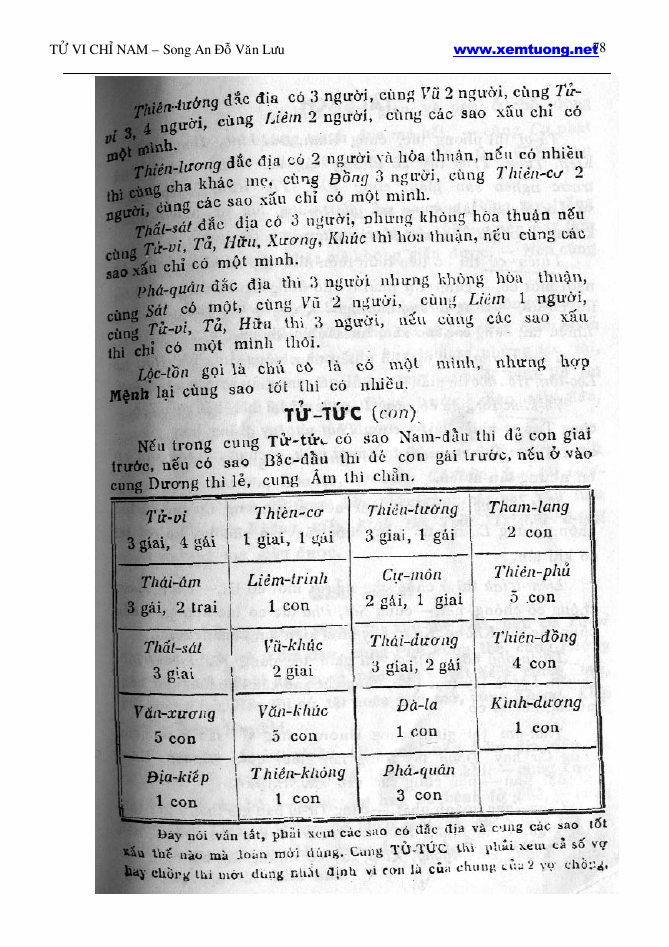 TỬ VI CHỈ NAM – Song An Đỗ Văn Lưu www.xemtuong.net 78
Thiên-tướng đắc địa có 3 người, cùng Vũ 2 người, cùng Tử-
vi 3, 4 người, cùng Liêm 2 người, cùng các sao xấu chỉ có
một mình.
Thiên-lương đắc địa có 2 người và hòa thuận, nếu có nhiều
thì cùng cha khác mẹ, cùng Đồng 3 người, cùng Thiên-cơ 2
người, cùng các sao xấu chỉ có một mình.
Thất-sát đắc địa có 3 người, nhưng không hòa thuận nếu
cùng Tử-vi, Tả, Hữu, Xương, Khúc thì hòa thuận, nếu cùng các
sao xấu chỉ có một mình.
Phá-quân đắc địa thì 3 người nhưng không hòa thuận,
cùng Sát có một, cùng Vũ 2 người, cùng Liêm 1 người,
cùng Tử-vi, Tả, Hữu thì 3 người, nếu cùng các sao xấu
thì chỉ có một mình thôi.
Lộc-tồn gọi là chủ cô là cô một mình, nhưng hợp
Mệnh lại cùng sao tốt thì có nhiều.
TỬ-TỨC (con)
Nếu trong cung Tử-tức có sao Nam-đầu thì đẻ con giai
trước, nếu có sao Bắc-đầu thì đẻ con gái trước, nếu ở vào
cung Dương thì lẻ, cung Âm thì chẵn.
Tử-vi Thiên-cơ Thiên-tướng Tham-lang
3 giai, 4 gái 1 giai, 1 gái 3 giai, 1 gái 2 con
Thái-âm Liêm-trinh Cự-môn Thiên-phủ
3 gái, 2 trai 1 con 2 gái, 1 giai 5 con
Thất-sát Vũ-khúc Thái-dương Thiên-đồng
3 giai 2 giai 3 giai, 2 gái 4 con
Văn-xương Văn-khúc Đà-la Kình-dương
5 con 5 con 1 con 1 con
Địa-kiếp Thiên-không Phá-quân
1 con 1 con 3 con
Đây nói vắn tắt, phải xem các sao có đắc địa và cùng các sao tốt
xấu thế nào mà đoán mới đúng. Cung TỬ-TỨC thì phải xem cả số vợ
hay chồng thì mới đúng nhất định vì con là của chung của 2 vợ chồng.